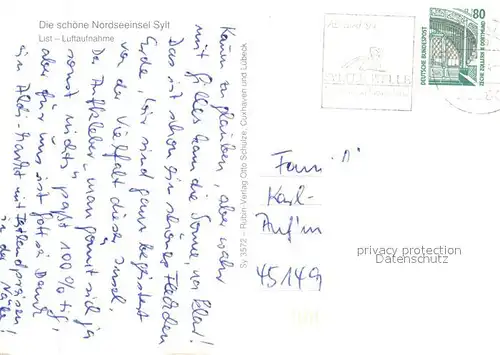 Die schöne Nordseeinsel Sylt
List – Luftaufnahme
Kaum zu glauben, aber wahr
mit Gilles kam die Sonne, na klar!
Das ist schon ein schönes Fleckchen
Erde, wir sind ganz begeistert
von der Vielfalt dieser Insel,
Der Aufkleber „man gönnt sich ja
sonst nichts" paßt 100%tig,
aber für uns ist Gott sei Dank
ein Aldi-Markt mit Festlandpreisen
in der Nähe!
Sy 3572 – Rubin-Verlag Otto Schulze, Cuxhaven und Lübeck
80
DEUTSCHE BUNDESPOST
ZECHE ZOLLERN II DORTMUND
Fam.
Karl-
Auf'm
45149
privacy protection
Datenschutz